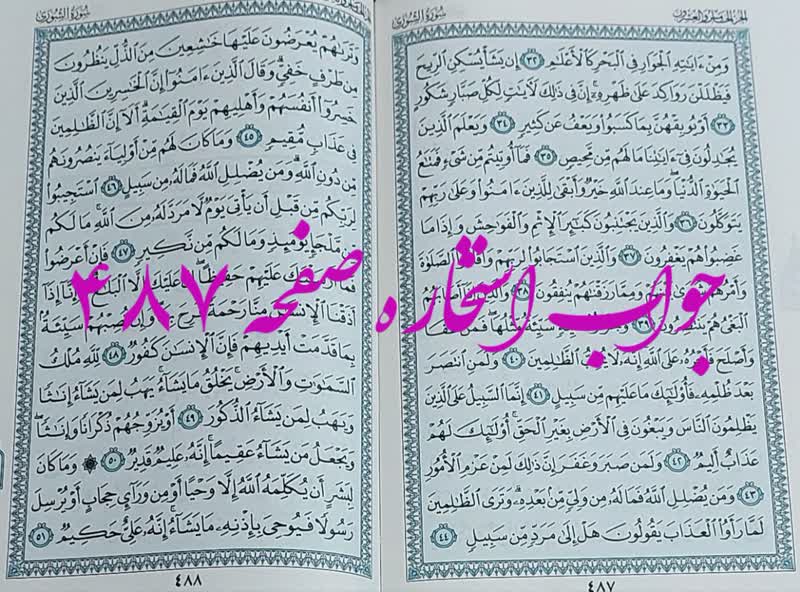 الجزء الخامس والعشرون
سُورَةُ الشُّورَىٰ
وَمِنْ ءَايَٰتِهِ ٱلْجَوَارِ فِي ٱلْبَحْرِ كَٱلْأَعْلَٰمِ ٣٢ إِن يَشَأْ يُسْكِنِ ٱلرِّيحَ
فَيَظْلَلْنَ رَوَاكِدَ عَلَىٰ ظَهْرِهِۦٓ إِنَّ فِي ذَٰلِكَ لَءَايَٰتٍ لِّكُلِّ صَبَّارٍ شَكُورٍ
٣٣ أَوْ يُوبِقْهُنَّ بِمَا كَسَبُواْ وَيَعْفُ عَن كَثِيرٍ ٣٤ وَيَعْلَمَ ٱلَّذِينَ
يُجَٰدِلُونَ فِيٓ ءَايَٰتِنَا مَا لَهُم مِّن مَّحِيصٍ ٣٥ فَمَآ أُوتِيتُم مِّن شَيْءٍ فَمَتَٰعُ
ٱلْحَيَوٰةِ ٱلدُّنْيَا وَمَا عِندَ ٱللَّهِ خَيْرٌ وَأَبْقَىٰ لِلَّذِينَ ءَامَنُواْ وَعَلَىٰ رَبِّهِمْ
يَتَوَكَّلُونَ ٣٦ وَٱلَّذِينَ يَجْتَنِبُونَ كَبَٰٓئِرَ ٱلْإِثْمِ وَٱلْفَوَٰحِشَ وَإِذَا مَا
غَضِبُواْ هُمْ يَغْفِرُونَ ٣٧ وَٱلَّذِينَ ٱسْتَجَابُواْ لِرَبِّهِمْ وَأَقَامُواْ ٱلصَّلَوٰةَ
وَأَمْرُهُمْ شُورَىٰ بَيْنَهُمْ وَمِمَّا رَزَقْنَٰهُمْ يُنفِقُونَ ٣٨ وَٱلَّذِينَ إِذَآ أَصَابَهُمُ
ٱلْبَغْيُ هُمْ يَنتَصِرُونَ ٣٩ وَجَزَٰٓؤُاْ سَيِّئَةٍ سَيِّئَةٌ مِّثْلُهَا فَمَنْ عَفَا
وَأَصْلَحَ فَأَجْرُهُۥ عَلَى ٱللَّهِ إِنَّهُۥ لَا يُحِبُّ ٱلظَّٰلِمِينَ ٤٠ وَلَمَنِ ٱنتَصَرَ
بَعْدَ ظُلْمِهِۦ فَأُوْلَٰٓئِكَ مَا عَلَيْهِم مِّن سَبِيلٍ ٤١ إِنَّمَا ٱلسَّبِيلُ عَلَى ٱلَّذِينَ
يَظْلِمُونَ ٱلنَّاسَ وَيَبْغُونَ فِي ٱلْأَرْضِ بِغَيْرِ ٱلْحَقِّ أُوْلَٰٓئِكَ لَهُمْ
عَذَابٌ أَلِيمٌ ٤٢ وَلَمَن صَبَرَ وَغَفَرَ إِنَّ ذَٰلِكَ لَمِنْ عَزْمِ ٱلْأُمُورِ
٤٣ وَمَن يُضْلِلِ ٱللَّهُ فَمَا لَهُۥ مِن وَلِيٍّ مِّنۢ بَعْدِهِۦ وَتَرَى ٱلظَّٰلِمِينَ
لَمَّا رَأَوُاْ ٱلْعَذَابَ يَقُولُونَ هَلْ إِلَىٰ مَرَدٍّ مِّن سَبِيلٍ ٤٤
٤٨٧
سُورَةُ الشُّورَىٰ
وَتَرَىٰهُمْ يُعْرَضُونَ عَلَيْهَا خَٰشِعِينَ مِنَ ٱلذُّلِّ يَنظُرُونَ
مِن طَرْفٍ خَفِيٍّ وَقَالَ ٱلَّذِينَ ءَامَنُوٓاْ إِنَّ ٱلْخَٰسِرِينَ ٱلَّذِينَ
خَسِرُوٓاْ أَنفُسَهُمْ وَأَهْلِيهِمْ يَوْمَ ٱلْقِيَٰمَةِ أَلَآ إِنَّ ٱلظَّٰلِمِينَ
فِي عَذَابٍ مُّقِيمٍ ٤٥ وَمَا كَانَ لَهُم مِّنْ أَوْلِيَآءَ يَنصُرُونَهُم
مِّن دُونِ ٱللَّهِ وَمَن يُضْلِلِ ٱللَّهُ فَمَا لَهُۥ مِن سَبِيلٍ ٤٦ ٱسْتَجِيبُواْ
لِرَبِّكُم مِّن قَبْلِ أَن يَأْتِيَ يَوْمٌ لَّا مَرَدَّ لَهُۥ مِنَ ٱللَّهِ مَا لَكُم
مِّن مَّلْجَإٍ يَوْمَئِذٍ وَمَا لَكُم مِّن نَّكِيرٍ ٤٧ فَإِنْ أَعْرَضُواْ
فَمَآ أَرْسَلْنَٰكَ عَلَيْهِمْ حَفِيظًا إِنْ عَلَيْكَ إِلَّا ٱلْبَلَٰغُ وَإِنَّآ إِذَآ
أَذَقْنَا ٱلْإِنسَٰنَ مِنَّا رَحْمَةً فَرِحَ بِهَا وَإِن تُصِبْهُمْ سَيِّئَةٌۢ
بِمَا قَدَّمَتْ أَيْدِيهِمْ فَإِنَّ ٱلْإِنسَٰنَ كَفُورٌ ٤٨ لِّلَّهِ مُلْكُ
ٱلسَّمَٰوَٰتِ وَٱلْأَرْضِ يَخْلُقُ مَا يَشَآءُ يَهَبُ لِمَن يَشَآءُ إِنَٰثًا
وَيَهَبُ لِمَن يَشَآءُ ٱلذُّكُورَ ٤٩ أَوْ يُزَوِّجُهُمْ ذُكْرَانًا وَإِنَٰثًا
وَيَجْعَلُ مَن يَشَآءُ عَقِيمًا إِنَّهُۥ عَلِيمٌ قَدِيرٌ ٥٠ ۞ وَمَا كَانَ
لِبَشَرٍ أَن يُكَلِّمَهُ ٱللَّهُ إِلَّا وَحْيًا أَوْ مِن وَرَآيِٕ حِجَابٍ أَوْ يُرْسِلَ
رَسُولًا فَيُوحِيَ بِإِذْنِهِۦ مَا يَشَآءُ إِنَّهُۥ عَلِيٌّ حَكِيمٌ ٥١
٤٨٨
جواب استخاره صفحه ۴۸۷